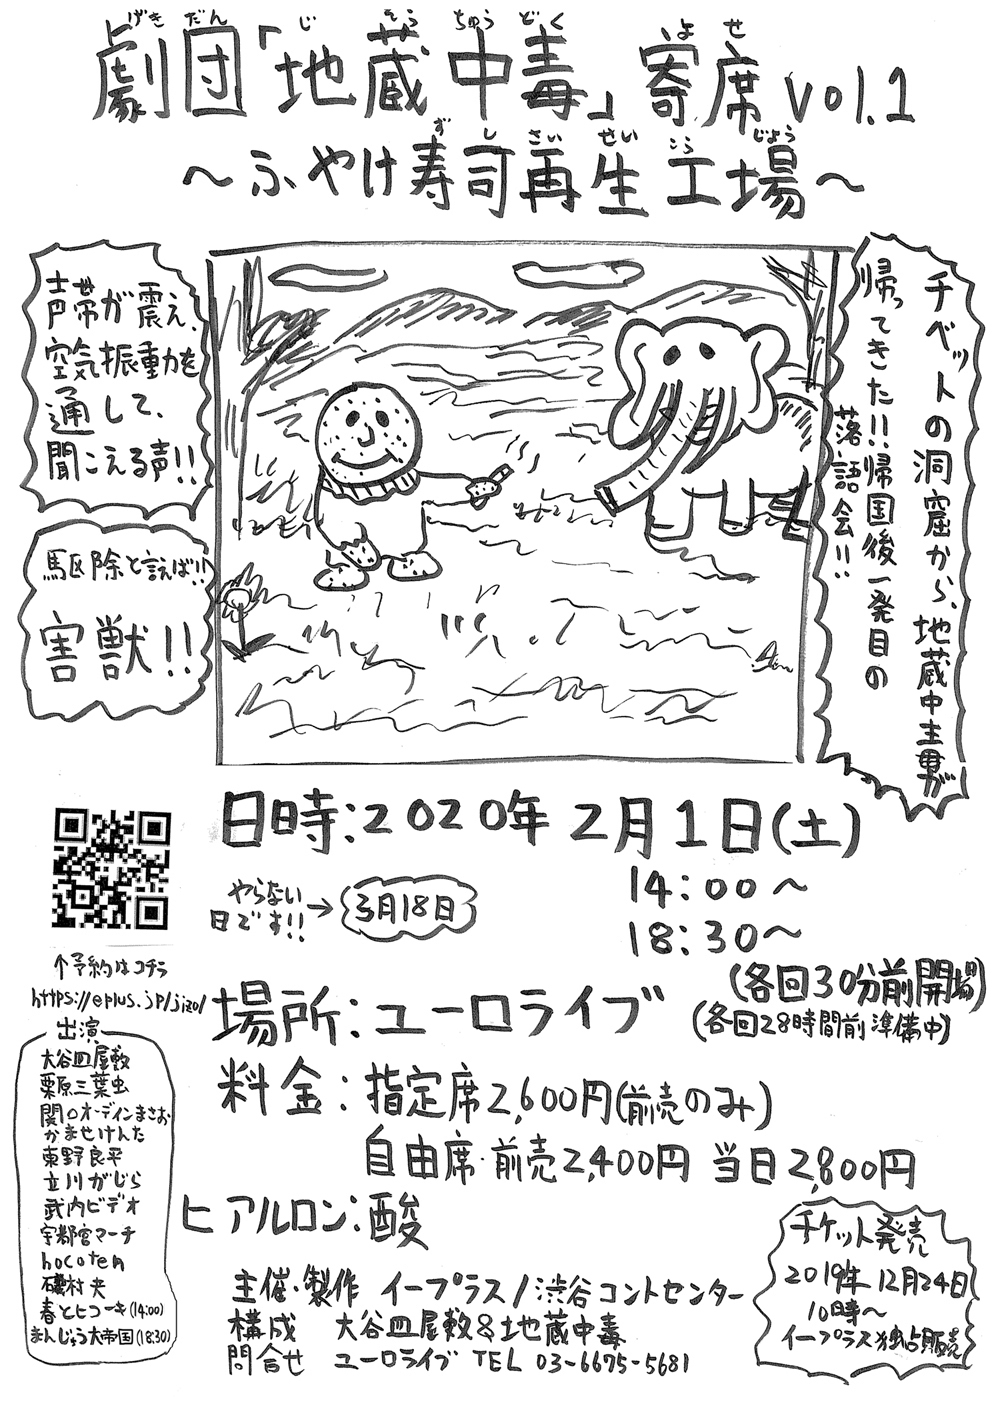 劇団「地蔵中毒」寄席 vol.1
げきだん じぞうちゅうどく よせ
～ふやけ寿司再生工場～
ずしさいせいこうじょう
チベットの洞窟から、地蔵中主男が
帰ってきた!!帰国後一発目の
落語会!!
声帯が震え、
空気振動を
通して、
聞こえる声!!
駆除と言えば!!
害獣!!
日時:2020年2月1日(土)
14:00～
18:30～
やらない
日です!!→3月18日
(各回30分前開場)
(各回28時間前準備中)
場所:ユーロライブ
料金:指定席2,600円(前売のみ)
自由席・前売2,400円 当日2,800円
ヒアルロン:酸
↑予約はコチラ
https://eplus.jp/jizo/
出演
大谷皿屋敷
栗原三葉虫
関口オーディンまさお
かませけんた
東野良平
立川がじら
武内ビデオ
宇都宮マーチ
hocoten
磯村 央
春とヒコーキ(14:00)
まんじゅう大帝国(18:30)
主催・製作 イープラス/渋谷コントセンター
構成 大谷皿屋敷&地蔵中毒
問合せ ユーロライブ TEL 03-6675-5681
チケット発売
2019年12月24日
10時～
イープラス独占販売